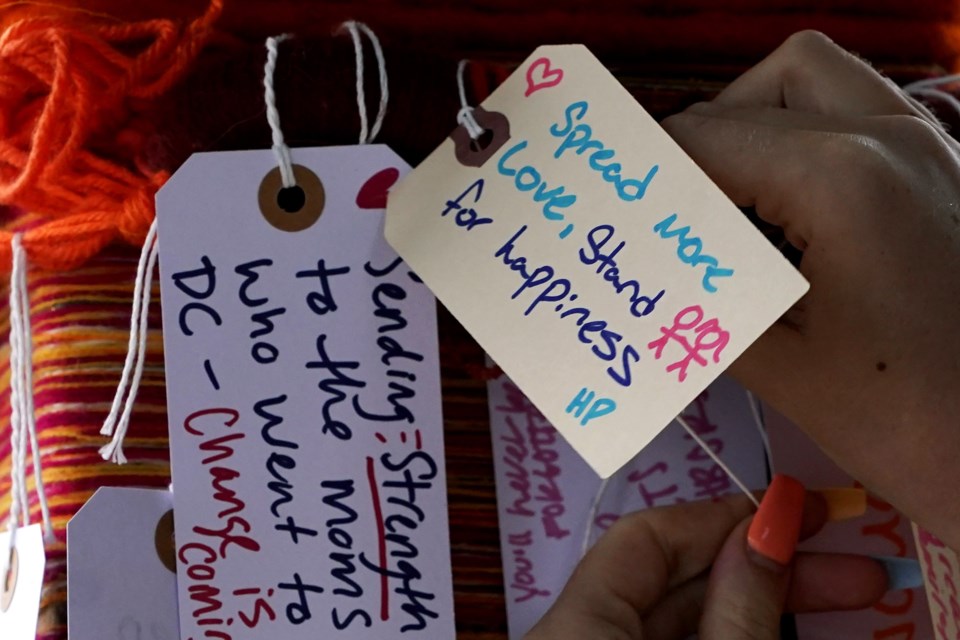 Spread more
Love, Stand
for happiness
HP
Sending Strength
to the moms
who went to
DC - Change is
you'll never